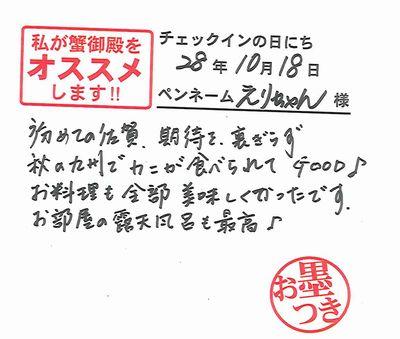 私が蟹御殿を
オススメ
します!!
チェックインの日にち
28年10月18日
ペンネーム えりちゃん 様
初めての佐賀、期待を、裏ぎらず
秋の九州でカニが食べられてGOOD♪
お料理も全部美味しくかったです.
お部屋の露天風呂も最高♪
お墨つき